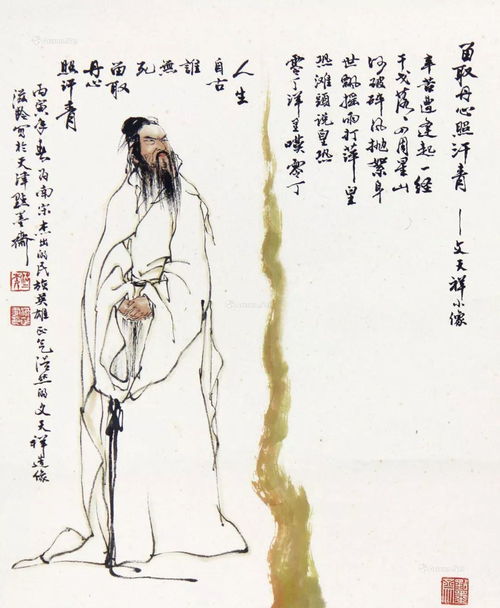 留取丹心照汗青——文天祥小像
辛苦遭逢起一经
干戈落〻四周星山
河破碎风抛絮身
世飘摇雨打萍皇
恐滩頭说皇恐
零丁洋里嘆零丁
人生
自古
誰
無
死
留取
丹心
照汗青
丙寅年春为南宋杰出的民族英雄正气浩然的文天祥造像
滋龄写於天津點墨齋